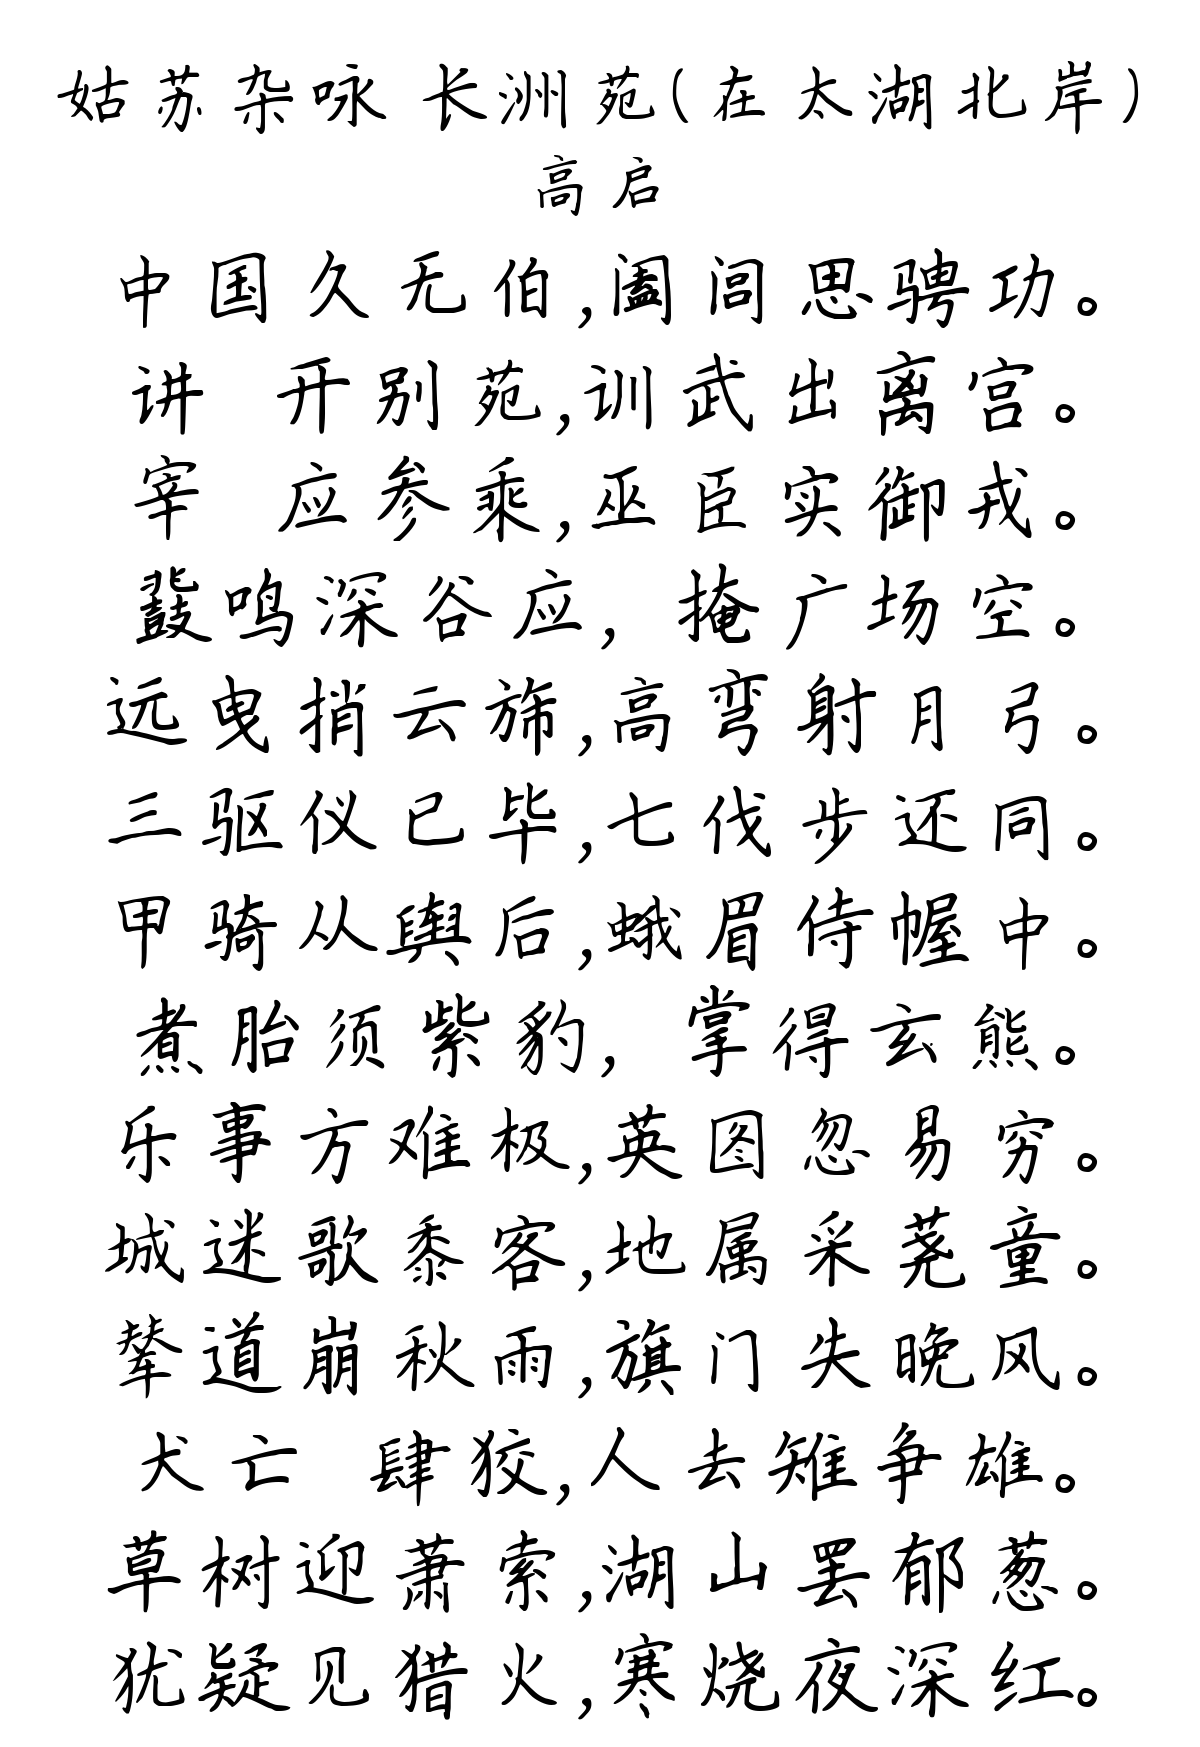 姑苏杂咏 长洲苑(在太湖北岸)
高启
中国久无伯,阖闾思骋功。
讲 开别苑,训武出离宫。
宰 应参乘,巫臣实御戎。
鼗鸣深谷应, 掩广场空。
远曳捎云旆,高弯射月弓。
三驱仪已毕,七伐步还同。
甲骑从舆后,蛾眉侍幄中。
煮胎须紫豹, 掌得玄熊。
乐事方难极,英图忽易穷。
城迷歌黍客,地属采荛童。
辇道崩秋雨,旗门失晚风。
犬亡 肆狡,人去雉争雄。
草树迎萧索,湖山罢郁葱。
犹疑见猎火,寒烧夜深红。